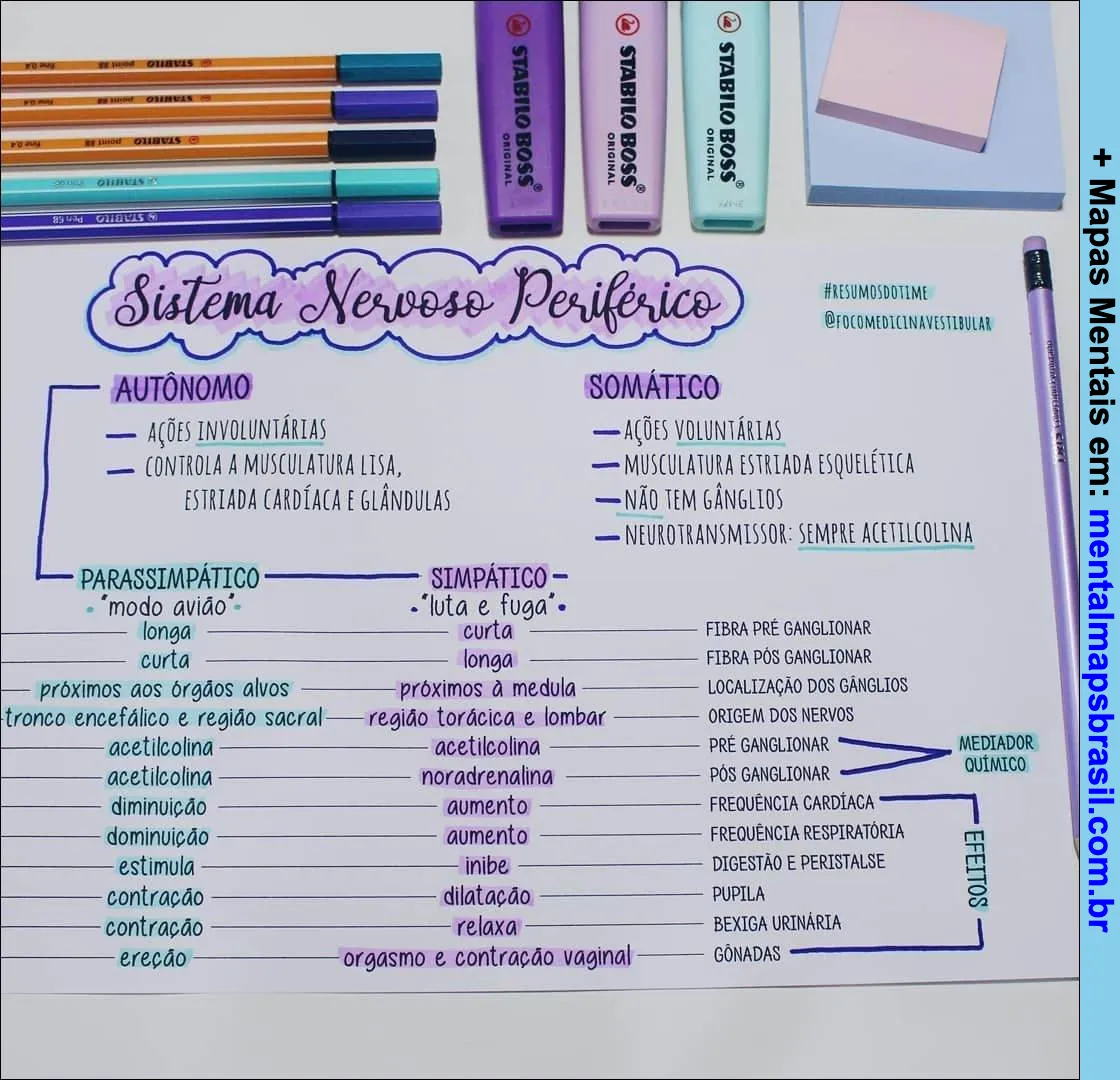 STABILO point 88 fine 0.4
STABILO point 88 fine 0.4
STABILO point 88 fine 0.4
STABILO
STABILO Pen 68
STABILO BOSS
ORIGINAL
STABILO BOSS
ORIGINAL
STABILO BOSS
ORIGINAL
Sistema Nervoso Periférico
#RESUMOSDOTIME
@FOCOMEDICINAVESTIBULAR
AUTÔNOMO
— AÇÕES INVOLUNTÁRIAS
— CONTROLA A MUSCULATURA LISA,
ESTRIADA CARDÍACA E GLÂNDULAS
SOMÁTICO
— AÇÕES VOLUNTÁRIAS
— MUSCULATURA ESTRIADA ESQUELÉTICA
— NÃO TEM GÂNGLIOS
— NEUROTRANSMISSOR: SEMPRE ACETILCOLINA
PARASSIMPÁTICO SIMPÁTICO
"modo avião" "luta e fuga"
longa curta FIBRA PRÉ GANGLIONAR
curta longa FIBRA PÓS GANGLIONAR
próximos aos órgãos alvos próximos à medula LOCALIZAÇÃO DOS GÂNGLIOS
tronco encefálico e região sacral região torácica e lombar ORIGEM DOS NERVOS
acetilcolina acetilcolina PRÉ GANGLIONAR
acetilcolina noradrenalina PÓS GANGLIONAR
MEDIADOR
QUÍMICO
diminuição aumento FREQUÊNCIA CARDÍACA
dominuição aumento FREQUÊNCIA RESPIRATÓRIA
estimula inibe DIGESTÃO E PERISTALSE
contração dilatação PUPILA
contração relaxa BEXIGA URINÁRIA
ereção orgasmo e contração vaginal GÔNADAS
EFEITOS
+ Mapas Mentais em: mentalmapsbrasil.com.br